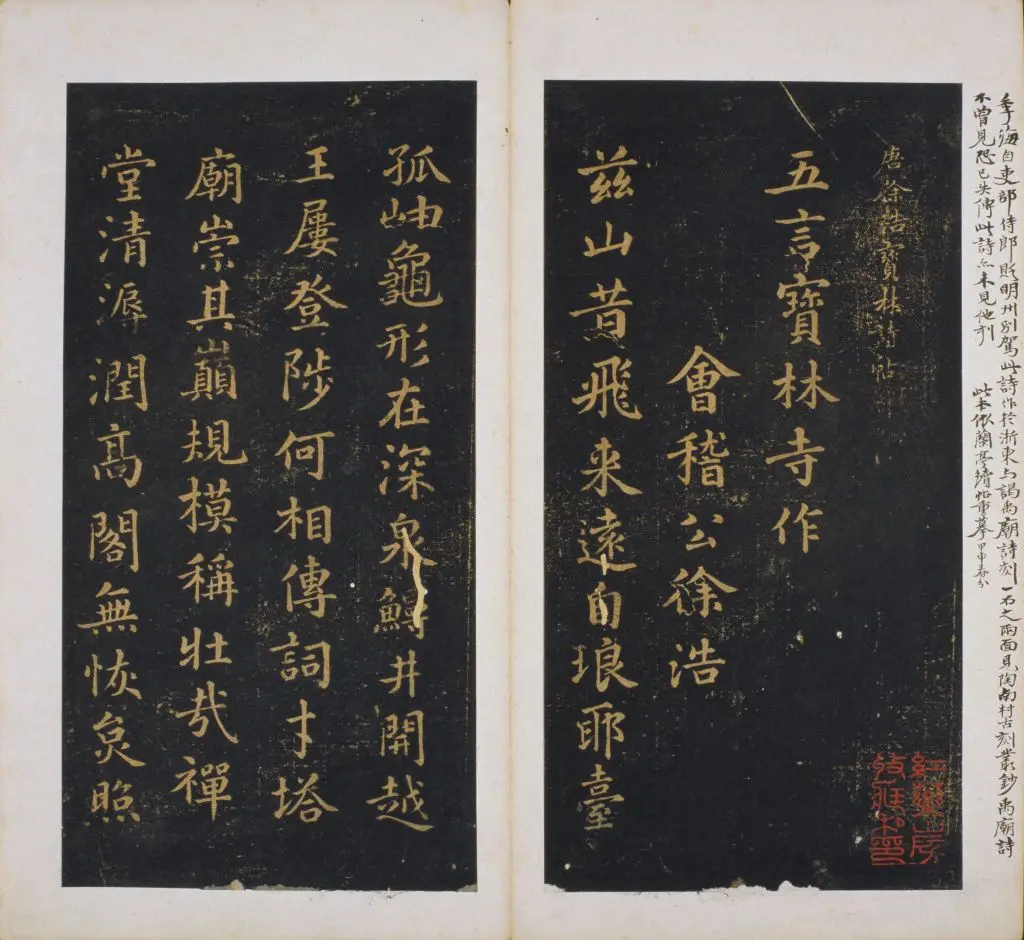 季海自吏部侍郎貶明州別駕此詩作於浙東与謁禹廟詩刻一石之兩面見陶南村古刻叢鈔禹廟詩
不曾見恐已失傳此詩亦未見他刻
此本依蘭亭續帖重摹甲申春分
唐徐浩寶林詩帖
五言寶林寺作
會稽公徐浩
茲山昔飛来遠自琅耶臺
孤岫龜形在深泉鱘井開越
王屢登陟何相傳詞才塔
廟崇其巔規模稱壯哉禪
堂清溽潤高閣無恢炱照